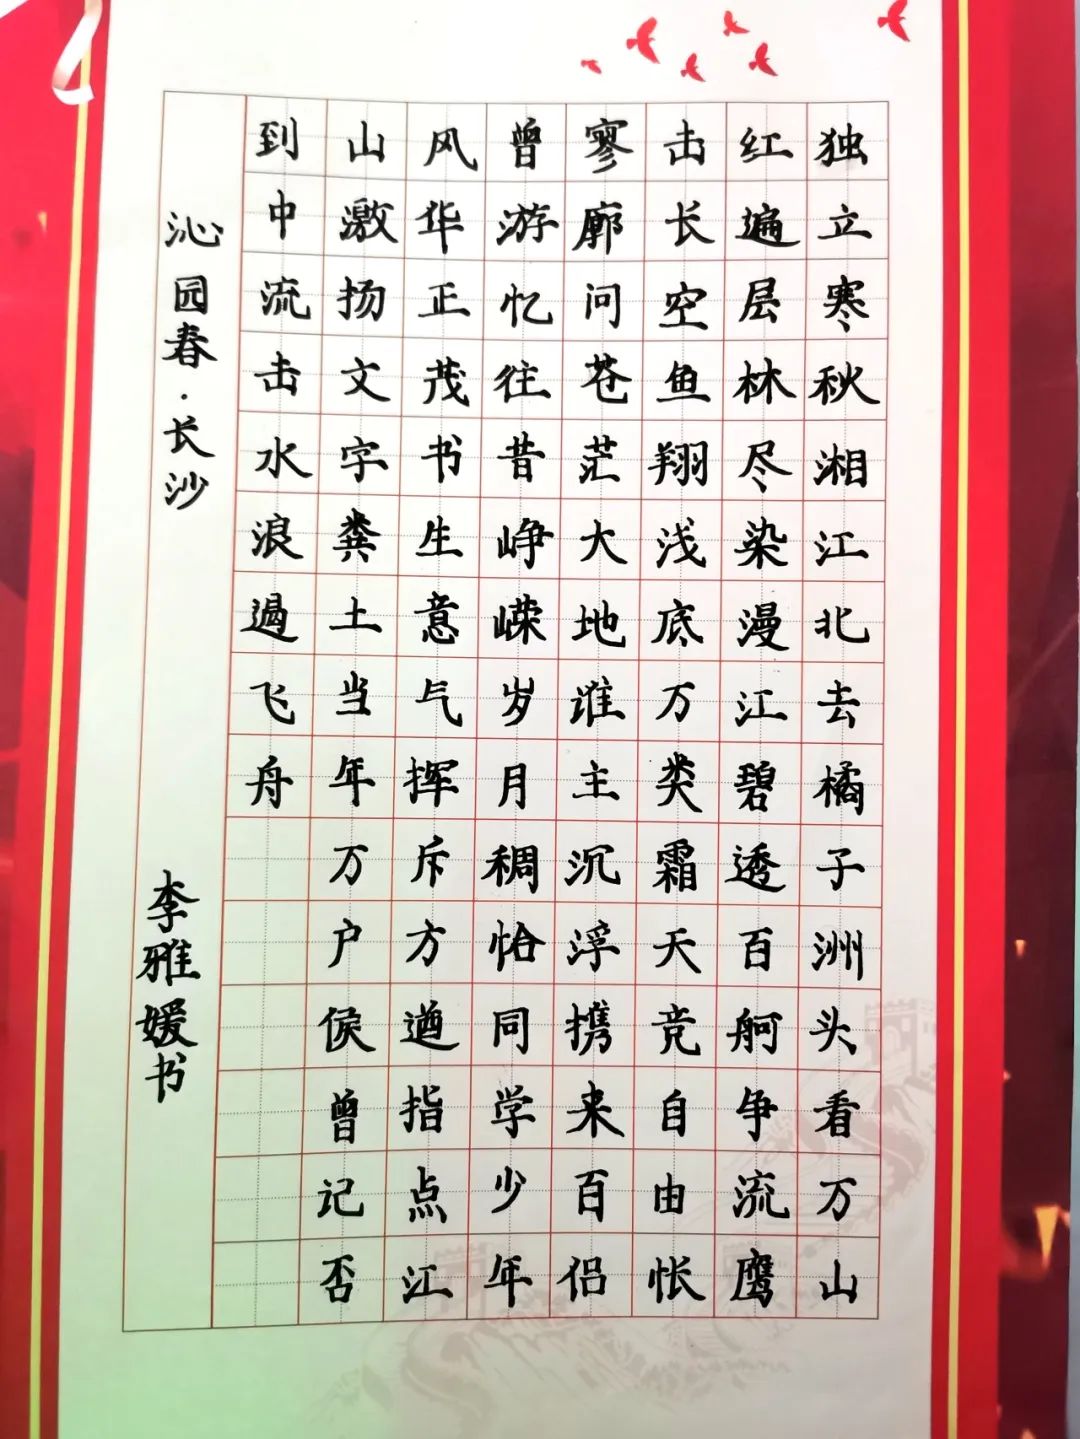 独立寒秋湘江北去橘子洲头看万山
红遍层林尽染漫江碧透百舸争流鹰
击长空鱼翔浅底万类霜天竞自由怅
寥廓问苍茫大地谁主沉浮携来百侣
曾游忆往昔峥嵘岁月稠恰同学少年
风华正茂书生意气挥斥方遒指点江
山激扬文字粪土当年万户侯曾记否
到中流击水浪遏飞舟
沁园春·长沙 李雅媛书